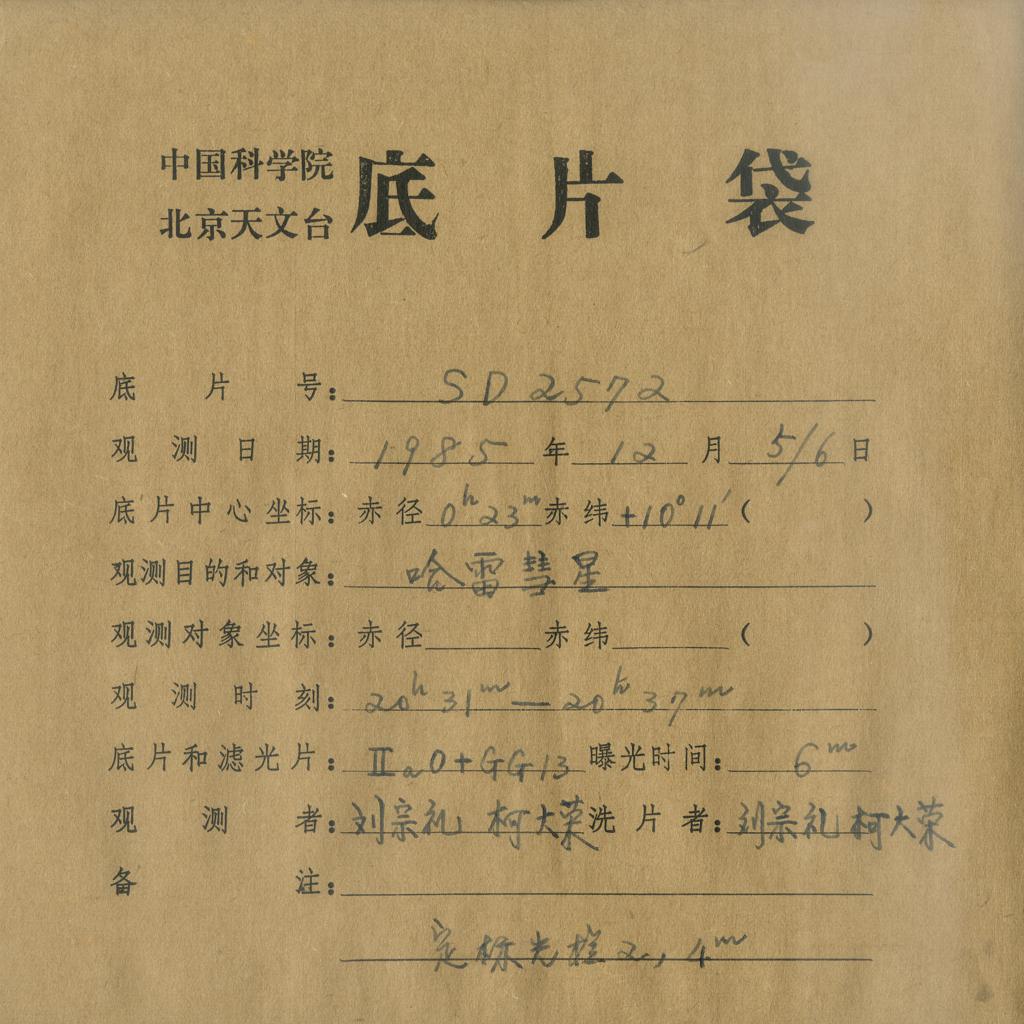 中国科学院
北京天文台
底片袋
底片号：SD2572
观测日期：1985年12月5/6日
底片中心坐标：赤径0ʰ23ᵐ赤纬+10°11′（ ）
观测目的和对象：哈雷彗星
观测对象坐标：赤径 赤纬 （ ）
观测时刻：20ʰ31ᵐ—20ʰ37ᵐ
底片和滤光片：ⅡaO+GG13 曝光时间：6ᵐ
观测者：刘宗礼 柯大荣 洗片者：刘宗礼 柯大荣
备注：
定标光楦2，4ᵐ